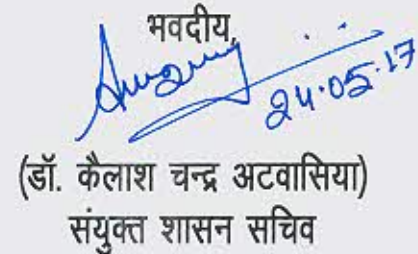 भवदीय,
24.05.17
(डॉ. कैलाश चन्द्र अटवासिया)
संयुक्त शासन सचिव